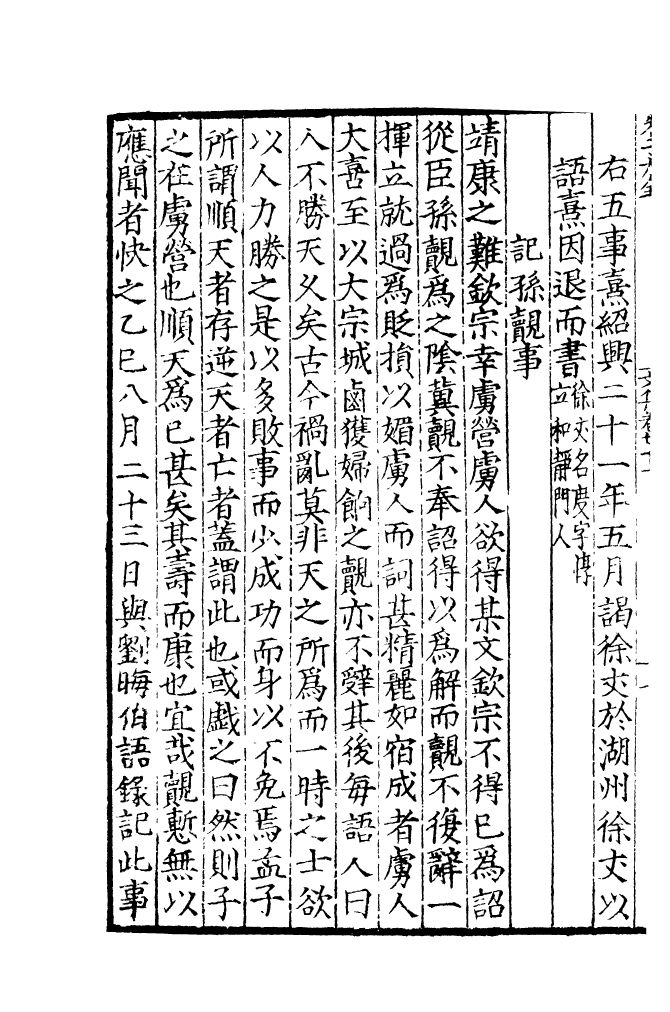 右五事熹紹興二十一年五月謁徐丈於湖州徐丈以
語熹因退而書徐丈名度字惇立和靜門人
記孫覿事
靖康之難欽宗幸虜營虜人欲得某文欽宗不得已為詔
從臣孫覿為之陰冀覿不奉詔得以為解而覿不復辭一
揮立就過為貶損以媚虜人而詞甚精麗如宿成者虜人
大喜至以大宗城鹵獲婦餉之覿亦不辭其後每語人曰
人不勝天久矣古今禍亂莫非天之所為而一時之士欲
以人力勝之是以多敗事而少成功而身以不免焉孟子
所謂順天者存逆天者亡者蓋謂此也或戲之曰然則子
之在虜營也順天為已甚矣其壽而康也宜哉覿慙無以
應聞者快之乙巳八月二十三日與劉晦伯語錄記此事